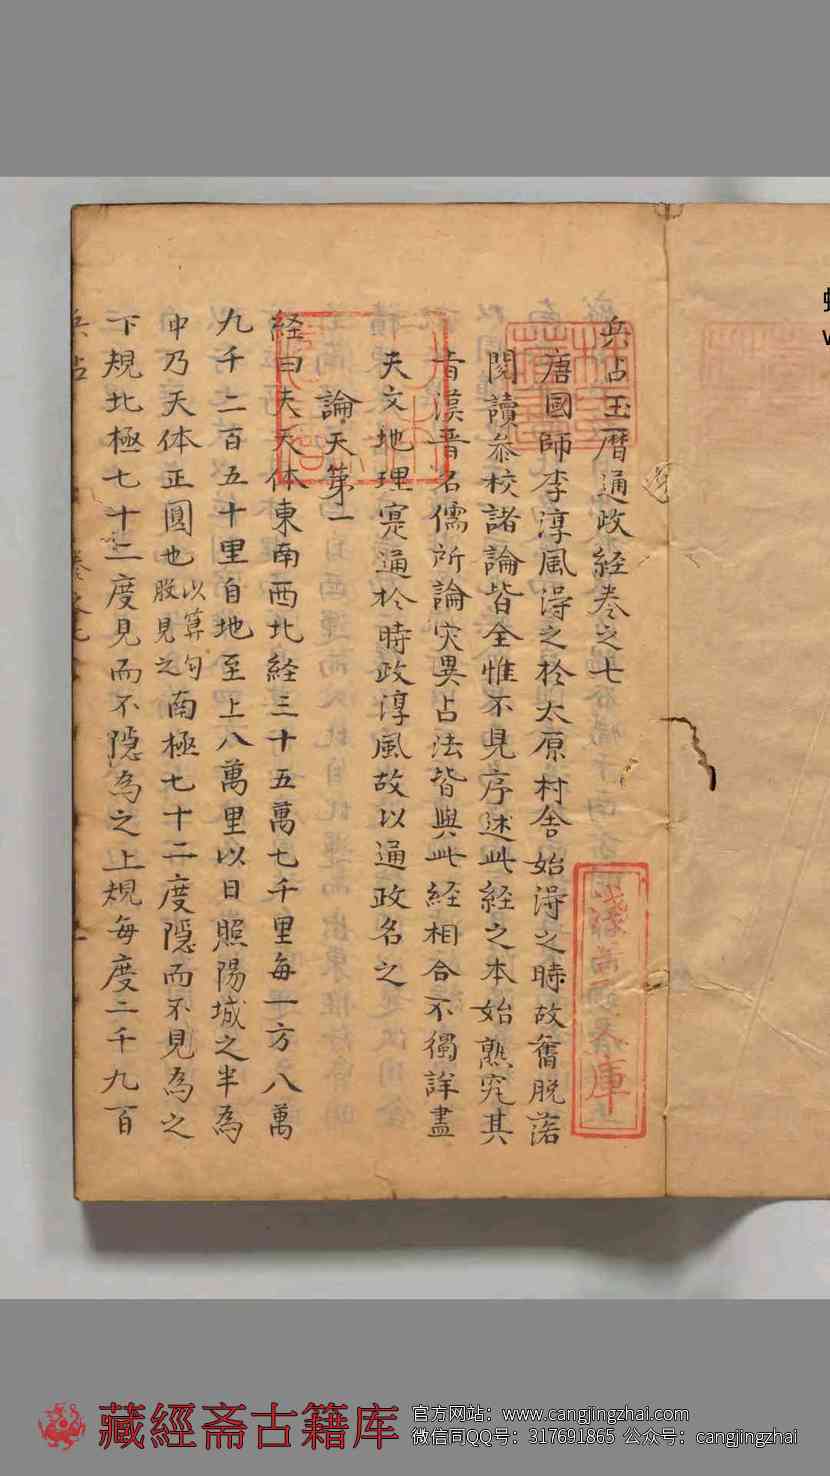 兵占玉曆通政經卷之七
唐國師李淳風淂之於太原村舍始淂之時故舊脫落
閱讀叅校諸論皆全惟不見序述此經之本始熟究其
旨漢晉名儒所論灾異占法皆與此経相合不獨詳盡
天文地理寔通於時政淳風故以通政名之
論天第一
経曰夫天体東南西北経三十五萬七千里每一方八萬
九千二百五十里自地至上八萬里以日照陽城之半為
中乃天体正圓也以算句股見之南極七十二度隐而不見為之
下規北極七十二度見而不隐為之上規每度二千九百
兵占
卷之七
一
庫
藏經斋古籍库
官方网站：www.cangjingzhai.com
微信同QQ号：317691865 公众号：cangjingzhai